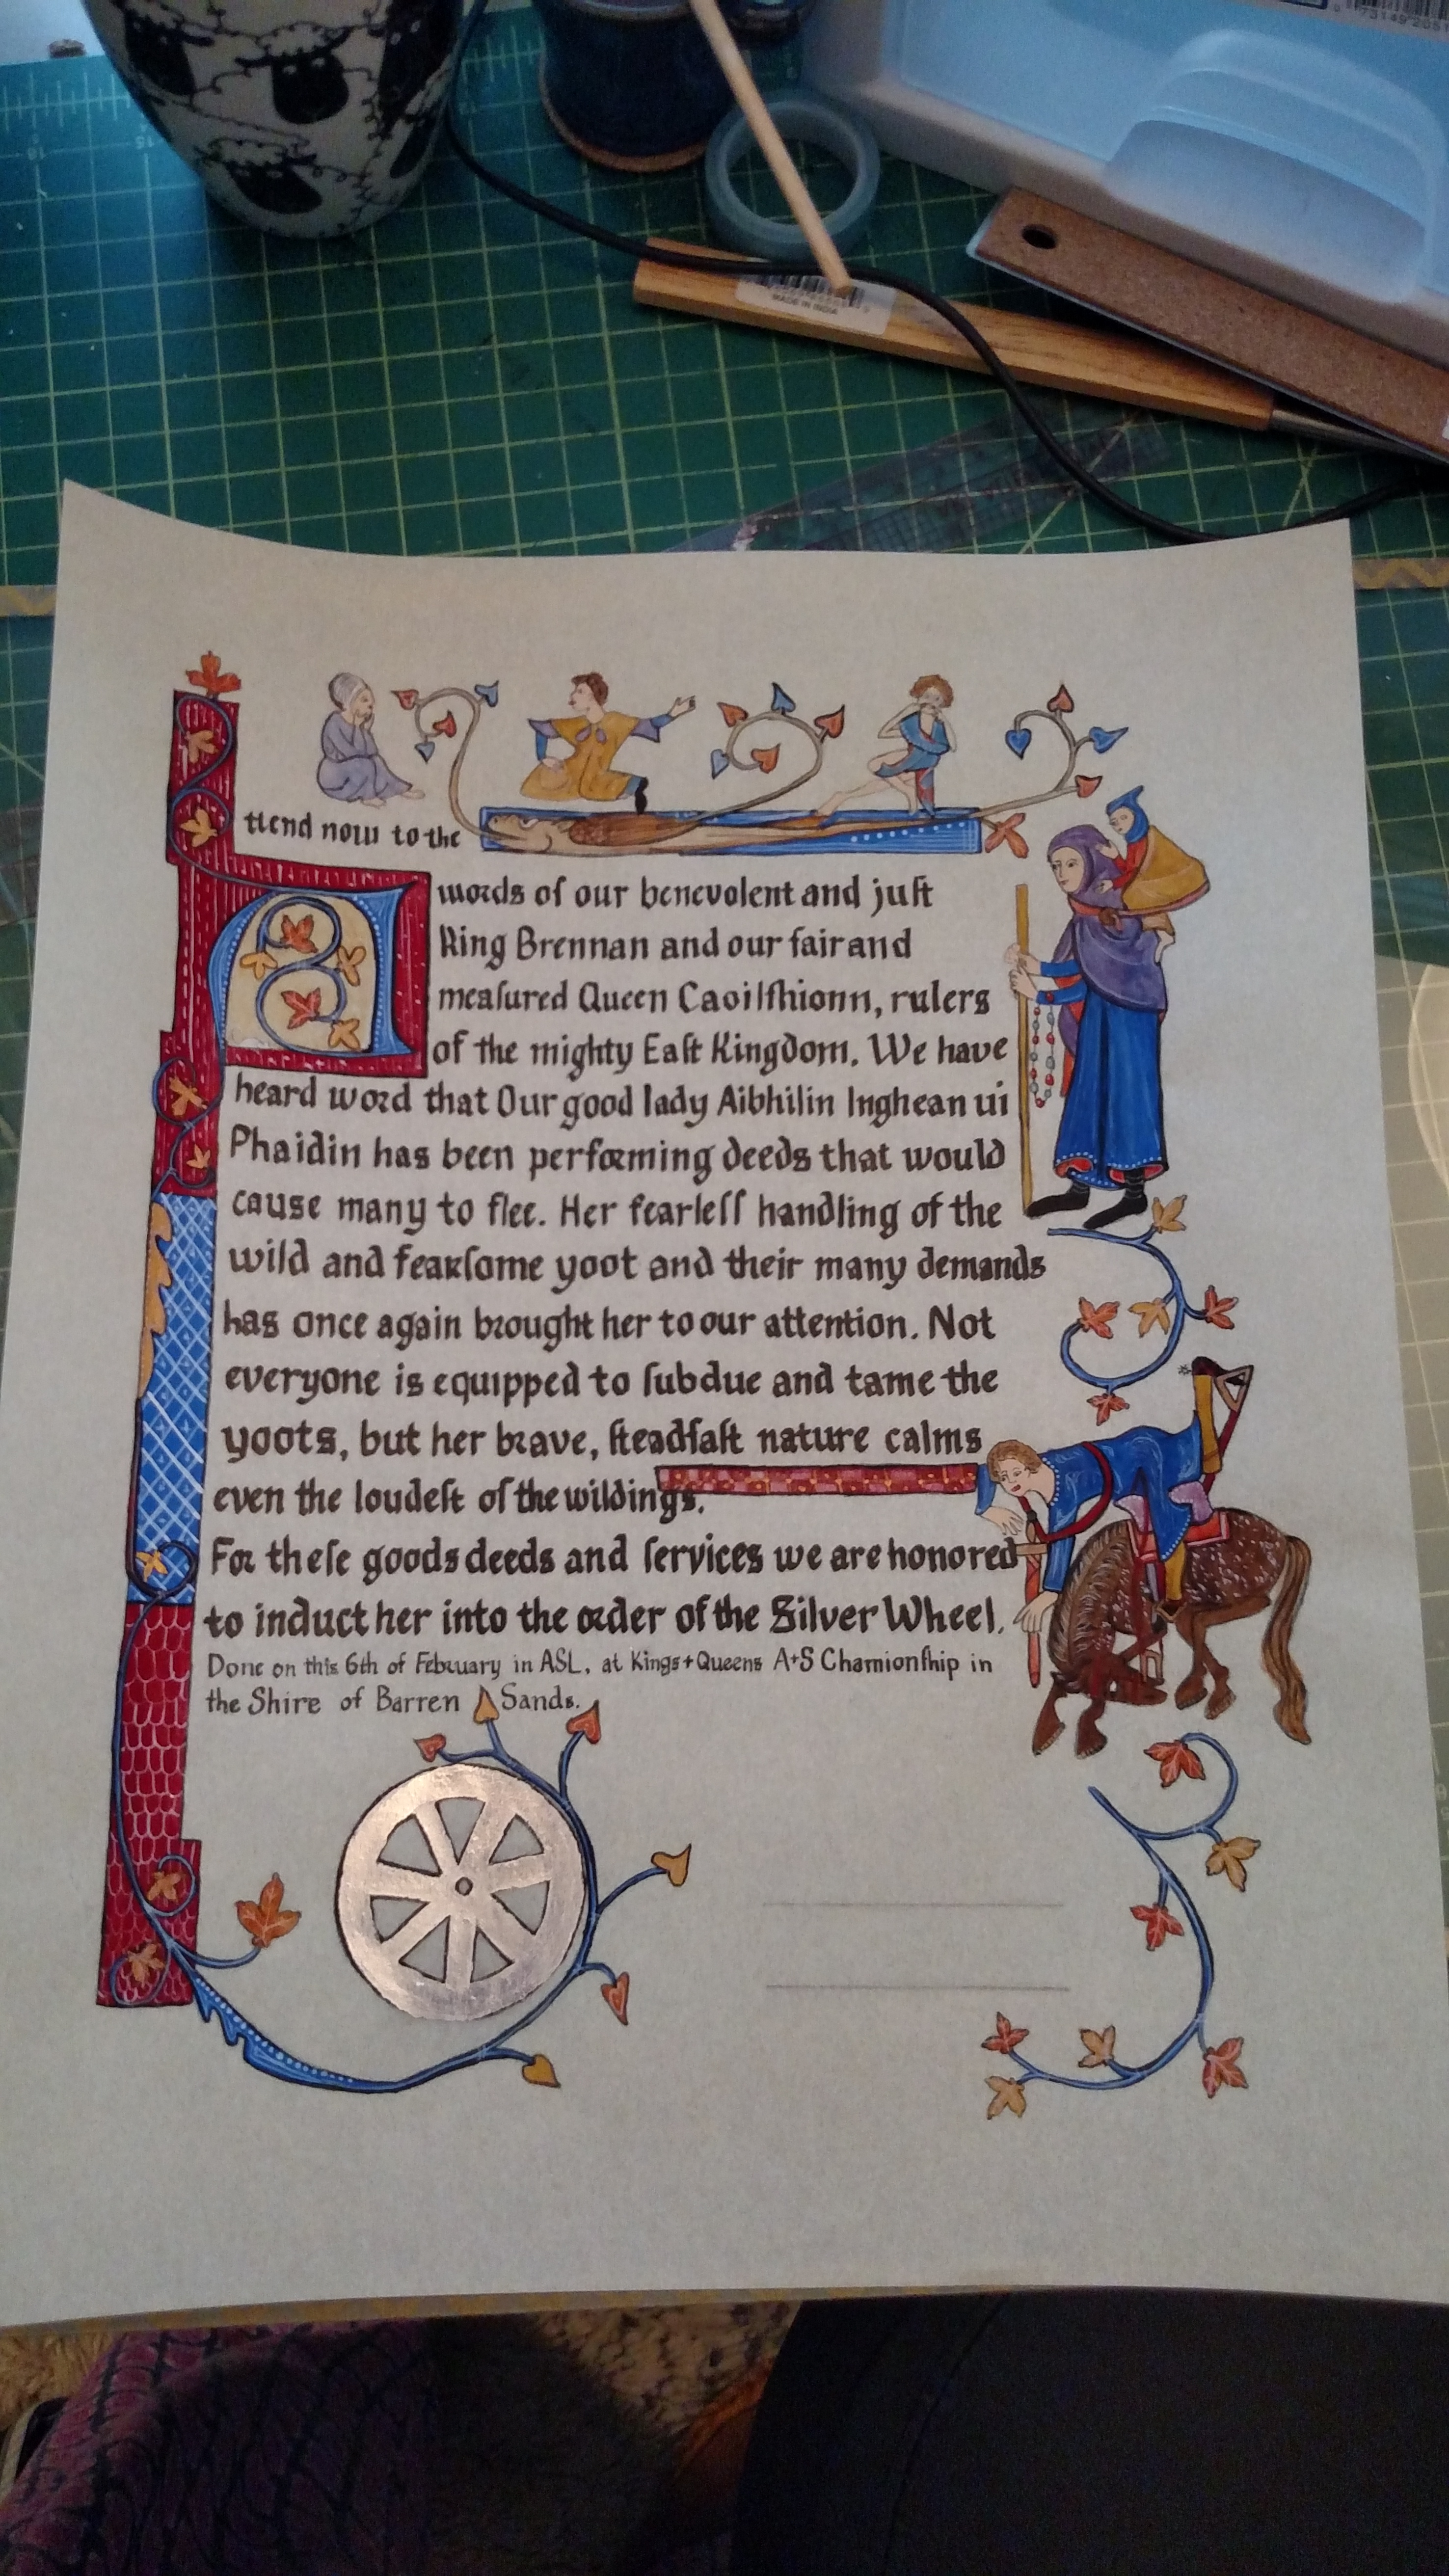 MADE IN INDIA
Attend now to the
words of our benevolent and juſt
King Brennan and our fair and
meaſured Queen Caoilfhionn, rulers
of the mighty Eaſt Kingdom. We have
heard word that Our good lady Aibhilin Inghean ui
Phaidin has been performing deeds that would
cause many to flee. Her fearleſſ handling of the
wild and fearſome yoot and their many demands
has once again brought her to our attention. Not
everyone is equipped to ſubdue and tame the
yoots, but her brave, ſteadfaſt nature calms
even the loudeſt of the wildings.
For theſe goods deeds and ſervices we are honored
to induct her into the order of the Silver Wheel.
Done on this 6th of February in ASL, at Kings+Queens A+S Chamionſhip in
the Shire of Barren Sands.